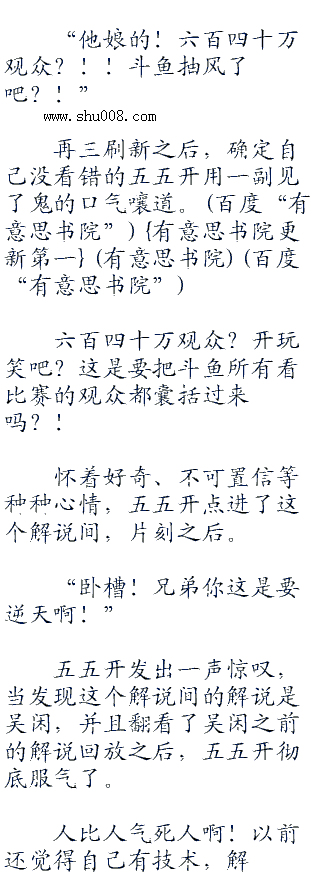 “他娘的！六百四十万
观众？！！斗鱼抽风了
吧？！”
www.shu008.com
再三刷新之后，确定自
己没看错的五五开用一副见
了鬼的口气嚷道。(百度“有
意思书院”) {有意思书院更
新第一} (有意思书院) (百度
“有意思书院”)
六百四十万观众？开玩
笑吧？这是要把斗鱼所有看
比赛的观众都囊括过来
吗？！
怀着好奇、不可置信等
种种心情，五五开点进了这
个解说间，片刻之后。
“卧槽！兄弟你这是要
逆天啊！”
五五开发出一声惊叹，
当发现这个解说间的解说是
吴闲，并且翻看了吴闲之前
的解说回放之后，五五开彻
底服气了。
人比人气死人啊！以前
还觉得自己有技术，解